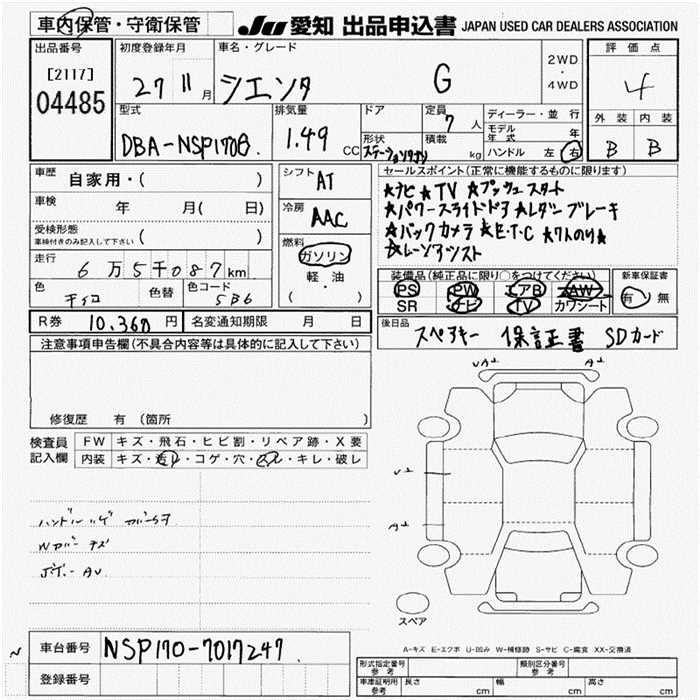 車内保管・守衛保管 JU 愛知 出品申込書 JAPAN USED CAR DEALERS ASSOCIATION
出品番号 初度登録年月 車名・グレード 2WD・4WD 評価点
[2117] 04485 27 11月 シエンタ G 4
型式 排気量 ドア 定員 ディーラー・並行 外装 内装
DBA-NSP170G 1.49 CC 7人 モデル年式 年 B B
形状 ステーションワゴン 積載 kg ハンドル 左 右
車歴 自家用・( ) シフト AT セールスポイント(正常に機能するものに限ります)
車検 年 月( 日) 冷房 AAC ★ナビ ★TV ★プッシュスタート
★パワースライドドア ★レダーブレーキ
受検形態 車検付きのみ記入して下さい ( ) ★バックカメラ ★E・T・C ★7人のり★
燃料 ガソリン 軽・油 ( )
走行 6万5千087km 装備品(純正品に限り○をつけてください) 新車保証書
色 チャコ 色替 色コード 5B6 PS PW エアB AW 有 無
SR ナビ TV カワシート
R券 10,360円 名変通知期限 月 日 後日品 スペアキー 保証書 SDカード
注意事項申告欄(不具合内容等は具体的に記入して下さい)
修復歴 有 (箇所 )
検査員記入欄 FW キズ・飛石・ヒビ割・リペア跡・X要
内装 キズ・汚レ・コゲ・穴・スレ・キレ・破レ
ハンドルハゲ
スペア
A-キズ E-エクボ U-凹み W-補修跡 S-サビ C-腐食 XX-交換済
車台番号 NSP170-7017247
登録番号
形式指定番号 参考 類別区分番号 参考
車庫証明用 参考 長さ cm 幅 cm 高さ cm